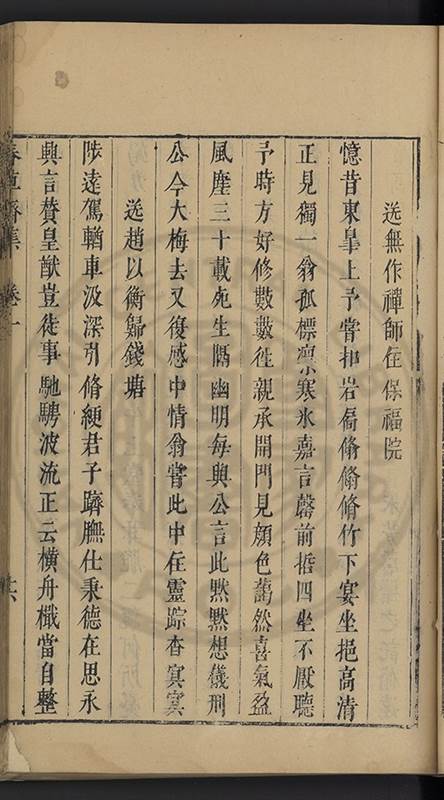 送無作禪師住保福院
憶昔東皐上予嘗扣岩扃翛翛脩竹下宴坐挹高清
正見獨一翁孤標凛寒氷嘉言馨前哲四坐不厭聽
予時方好修數數徃親承開門見顔色藹然喜氣盈
風塵三十載死生隔幽明每與公言此黙黙想儀刑
公今大梅去又復感中情翁嘗此中住靈踪杳冥冥
送趙以衡歸錢塘
陟遠駕輶車汲深引脩綆君子躋膴仕秉德在思永
興言賛皇猷豈徒事馳騁波流正云橫舟檝當自整
春草齋集 卷一 十六